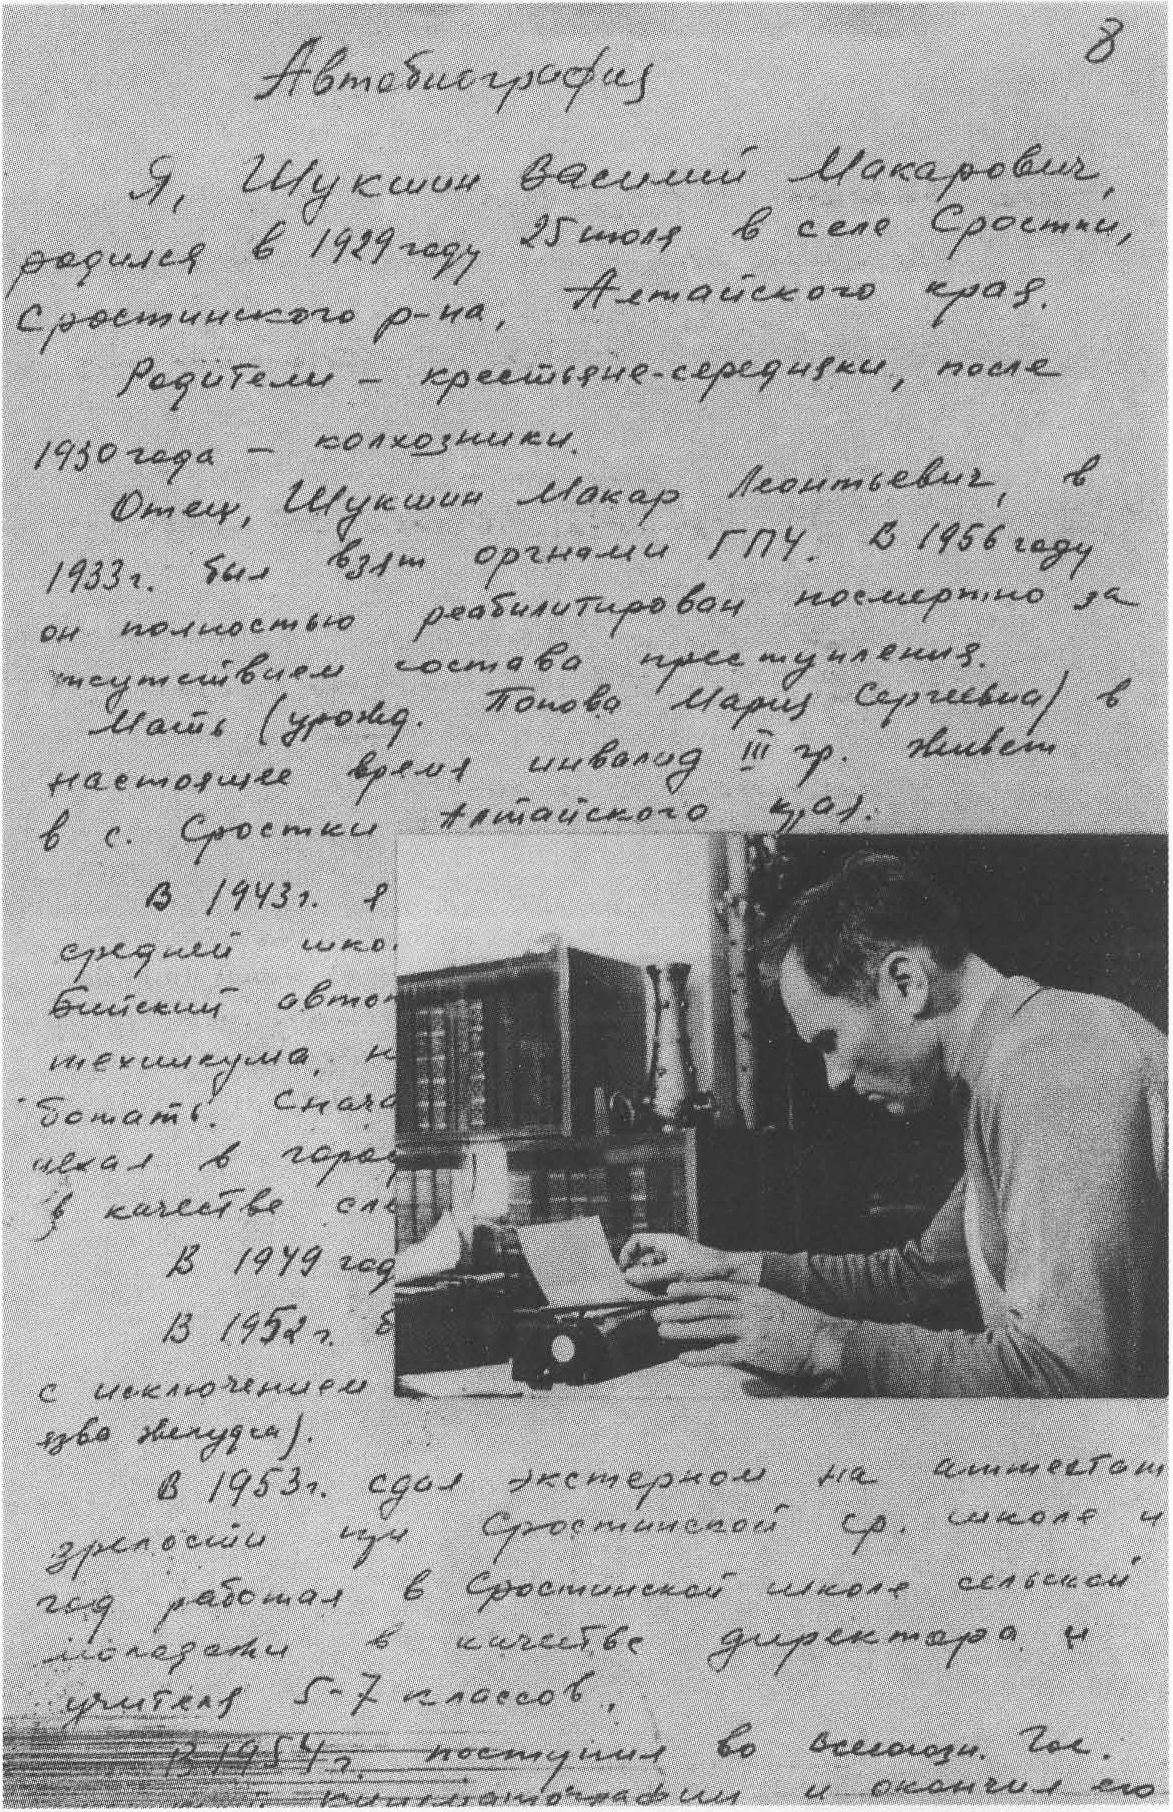 8
Автобиография
Я, Шукшин Василий Макарович,
родился в 1929 году 25 июля в селе Сростки,
Сростинского р-на, Алтайского края.
Родители – крестьяне-середняки, после
1930 года – колхозники.
Отец, Шукшин Макар Леонтьевич, в
1933 г. был взят оргнами ГПУ. В 1956 году
он полностью реабилитирован посмертно за
отсутствием состава преступления.
Мать (урожд. Попова Мария Сергеевна) в
настоящее время инвалид III гр. Живет
в с. Сростки Алтайского края.
В 1943 г. я
средней шко
Бийский автот
техникума, н
ботать. Снача
уехал в город
в качестве сле
В 1949 год
В 1952 г. б
с исключением
язва желудка).
В 1953 г. сдал экстерном на аттестат
зрелости при Сростинской ср. школе и
год работал в Сростинской школе сельской
молодежи в качестве директора и
учителя 5-7 классов.
В 1954 г. поступил во Всесоюзн. Гос.
кинематографии и окончил его